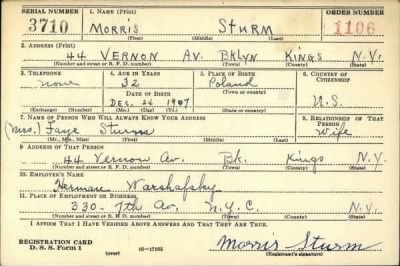 SERIAL NUMBER 1. NAME (Print) ORDER NUMBER
3710 MORRIS STURM 1106
(First) (Middle) (Last)
2. ADDRESS (Print)
44 VERNON AV. BKLYN KINGS N.Y.
(Number and street or R. F. D. number) (Town) (County) (State)
3. TELEPHONE 4. AGE IN YEARS 5. PLACE OF BIRTH 6. COUNTRY OF CITIZENSHIP
none 32 Poland
DATE OF BIRTH (Town or county)
DEC. 24 1907 U.S.
(Exchange) (Number) (Mo.) (Day) (Yr.) (State or country)
7. NAME OF PERSON WHO WILL ALWAYS KNOW YOUR ADDRESS 8. RELATIONSHIP OF THAT PERSON
(Mrs.) Faye Sturm Wife
(Mr., Mrs., Miss) (First) (Middle) (Last)
9. ADDRESS OF THAT PERSON
44 Vernon Av. Bk. Kings N.Y.
(Number and street or R. F. D. number) (Town) (County) (State)
10. EMPLOYER'S NAME
Herman Warshafsky
11. PLACE OF EMPLOYMENT OR BUSINESS
330-7th Av. N.Y.C. N.Y.
(Number and street or R. F. D. number) (Town) (County) (State)
I AFFIRM THAT I HAVE VERIFIED ABOVE ANSWERS AND THAT THEY ARE TRUE.
REGISTRATION CARD
D. S. S. Form 1 (over) 16-17105 Morris Sturm
(Registrant's signature)